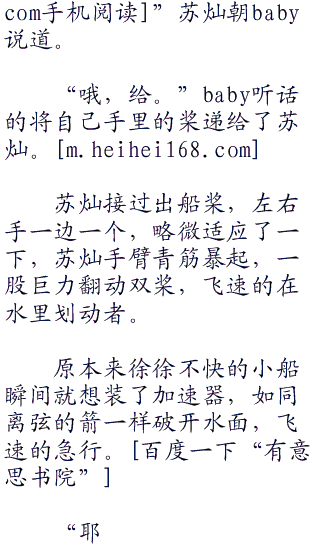 com手机阅读]”苏灿朝baby
说道。
“哦，给。”baby听话
的将自己手里的桨递给了苏
灿。[m.heihei168.com]
苏灿接过出船桨，左右
手一边一个，略微适应了一
下，苏灿手臂青筋暴起，一
股巨力翻动双桨，飞速的在
水里划动者。
原本来徐徐不快的小船
瞬间就想装了加速器，如同
离弦的箭一样破开水面，飞
速的急行。[百度一下“有意
思书院”]
“耶